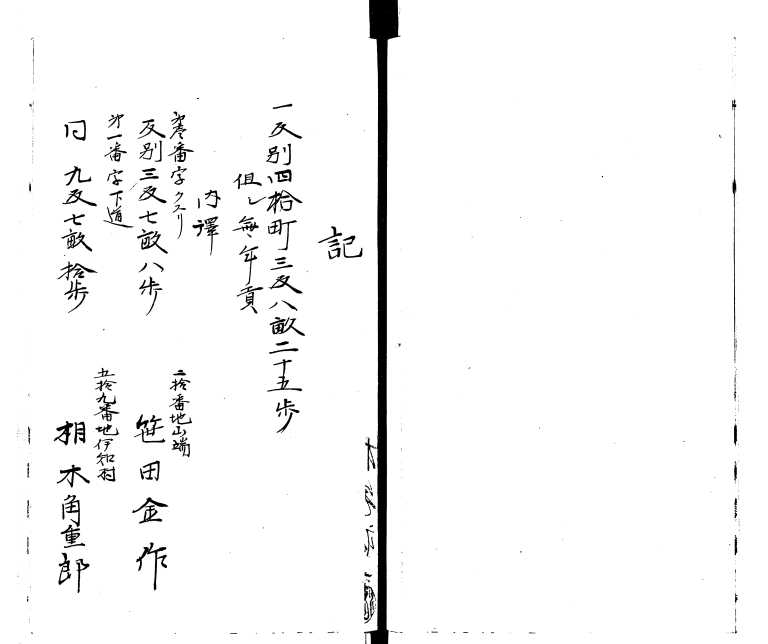 記
一反別四拾町三反八畝二十五歩
但シ無年貢
内譯
第壱番字クスリ
反別三反七畝八歩
二拾番地山端
笹田金作
第一番字下道
同九反七畝拾歩
五拾九番地伊知村
相木角重郎